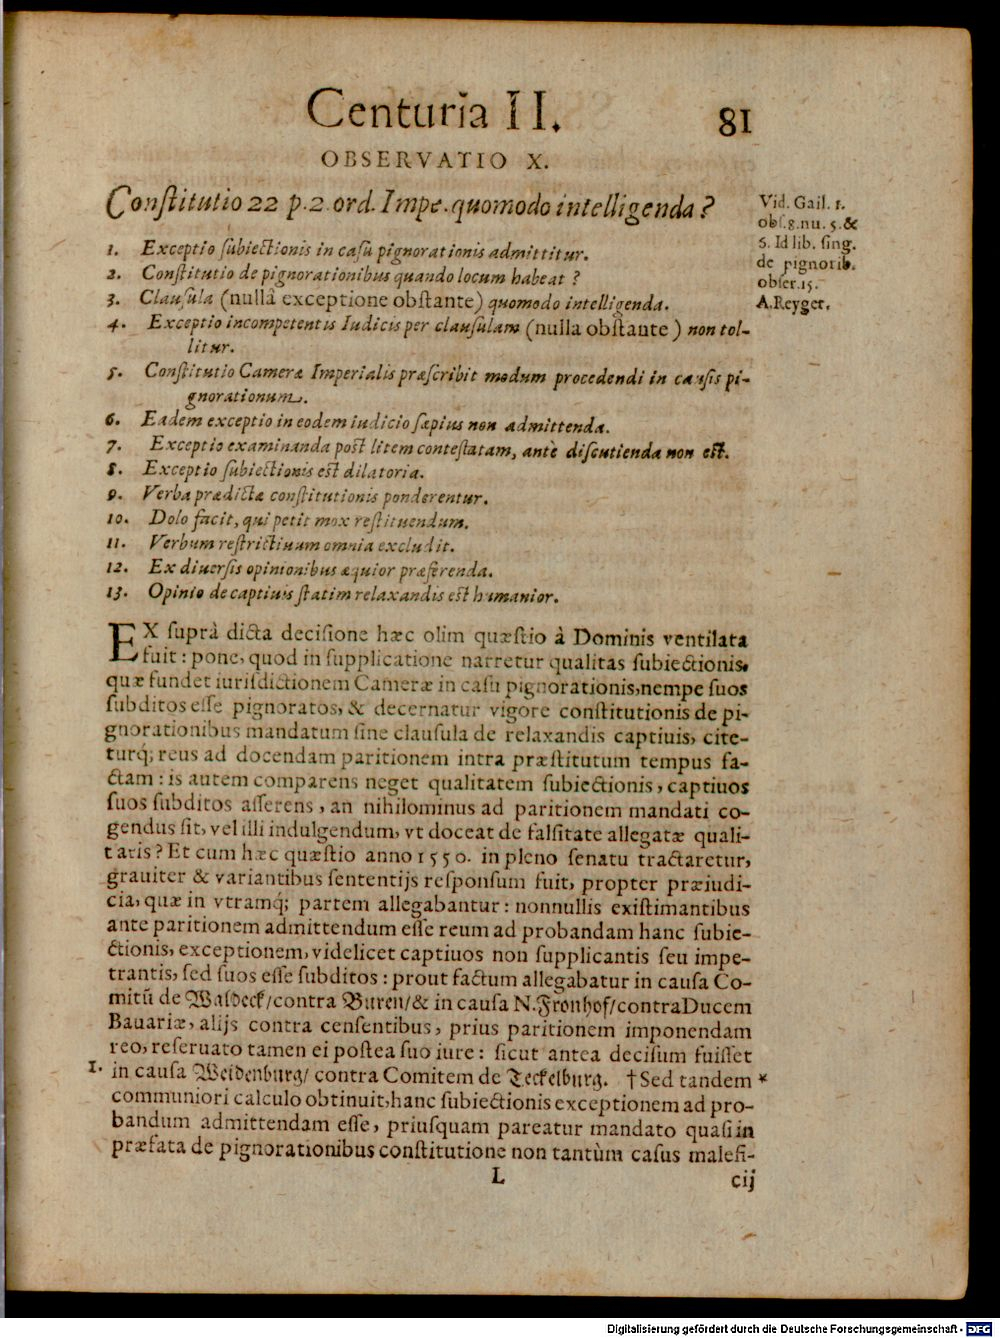 Centuria II. 81
OBSERVATIO X.
Constitutio 22 p. 2. ord. Impe. quomodo intelligenda?
Vid. Gail. 1.
obs. 8. nu. 5. &
6. Id lib. sing.
de pignorib.
obser. 15.
A. Reyger.
1. Exceptio subiectionis in casu pignorationis admittitur.
2. Constitutio de pignorationibus quando locum habeat?
3. Clausula (nullâ exceptione obstante) quomodo intelligenda.
4. Exceptio incompetentis Iudicis per clausulam (nulla obstante) non tol-
litur.
5. Constitutio Cameræ Imperialis præscribit modum procedendi in causis pi-
gnorationum.
6. Eadem exceptio in eodem iudicio sæpius non admittenda.
7. Exceptio examinanda post litem contestatam, antè discutienda non est.
8. Exceptio subiectionis est dilatoria.
9. Verba prædictæ constitutionis ponderentur.
10. Dolo facit, qui petit mox restituendum.
11. Verbum restrictiuum omnia excludit.
12. Ex diuersis opinionibus æquior præferenda.
13. Opinio de captiuis statim relaxandis est humanior.
EX suprà dicta decisione hæc olim quæstio à Dominis ventilata
fuit: pone, quod in supplicatione narretur qualitas subiectionis,
quæ fundet iurisdictionem Cameræ in casu pignorationis, nempe suos
subditos esse pignoratos, & decernatur vigore constitutionis de pi-
gnorationibus mandatum sine clausula de relaxandis captiuis, cite-
turq́; reus ad docendam paritionem intra præstitutum tempus fa-
ctam: is autem comparens neget qualitatem subiectionis, captiuos
suos subditos asserens, an nihilominus ad paritionem mandati co-
gendus sit, vel illi indulgendum, vt doceat de falsitate allegatæ quali-
tatis? Et cum hæc quæstio anno 1550. in pleno senatu tractaretur,
grauiter & variantibus sententijs responsum fuit, propter præiudi-
cia, quæ in vtramq́; partem allegabantur: nonnullis existimantibus
ante paritionem admittendum esse reum ad probandam hanc subie-
ctionis, exceptionem, videlicet captiuos non supplicantis seu impe-
trantis, sed suos esse subditos: prout factum allegabatur in causa Co-
mitū de Waldeck/ contra Buren/ & in causa N. Fronhof/ contra Ducem
Bauariæ, alijs contra censentibus, prius paritionem imponendam
reo, reseruato tamen ei postea suo iure: sicut antea decisum fuisset
1. in causa Weidenburg/ contra Comitem de Teckelburg. † Sed tandem *
communiori calculo obtinuit, hanc subiectionis exceptionem ad pro-
bandum admittendam esse, priusquam pareatur mandato quasi in
præfata de pignorationibus constitutione non tantùm casus malefi-
L cij
Digitalisierung gefördert durch die Deutsche Forschungsgemeinschaft - DFG